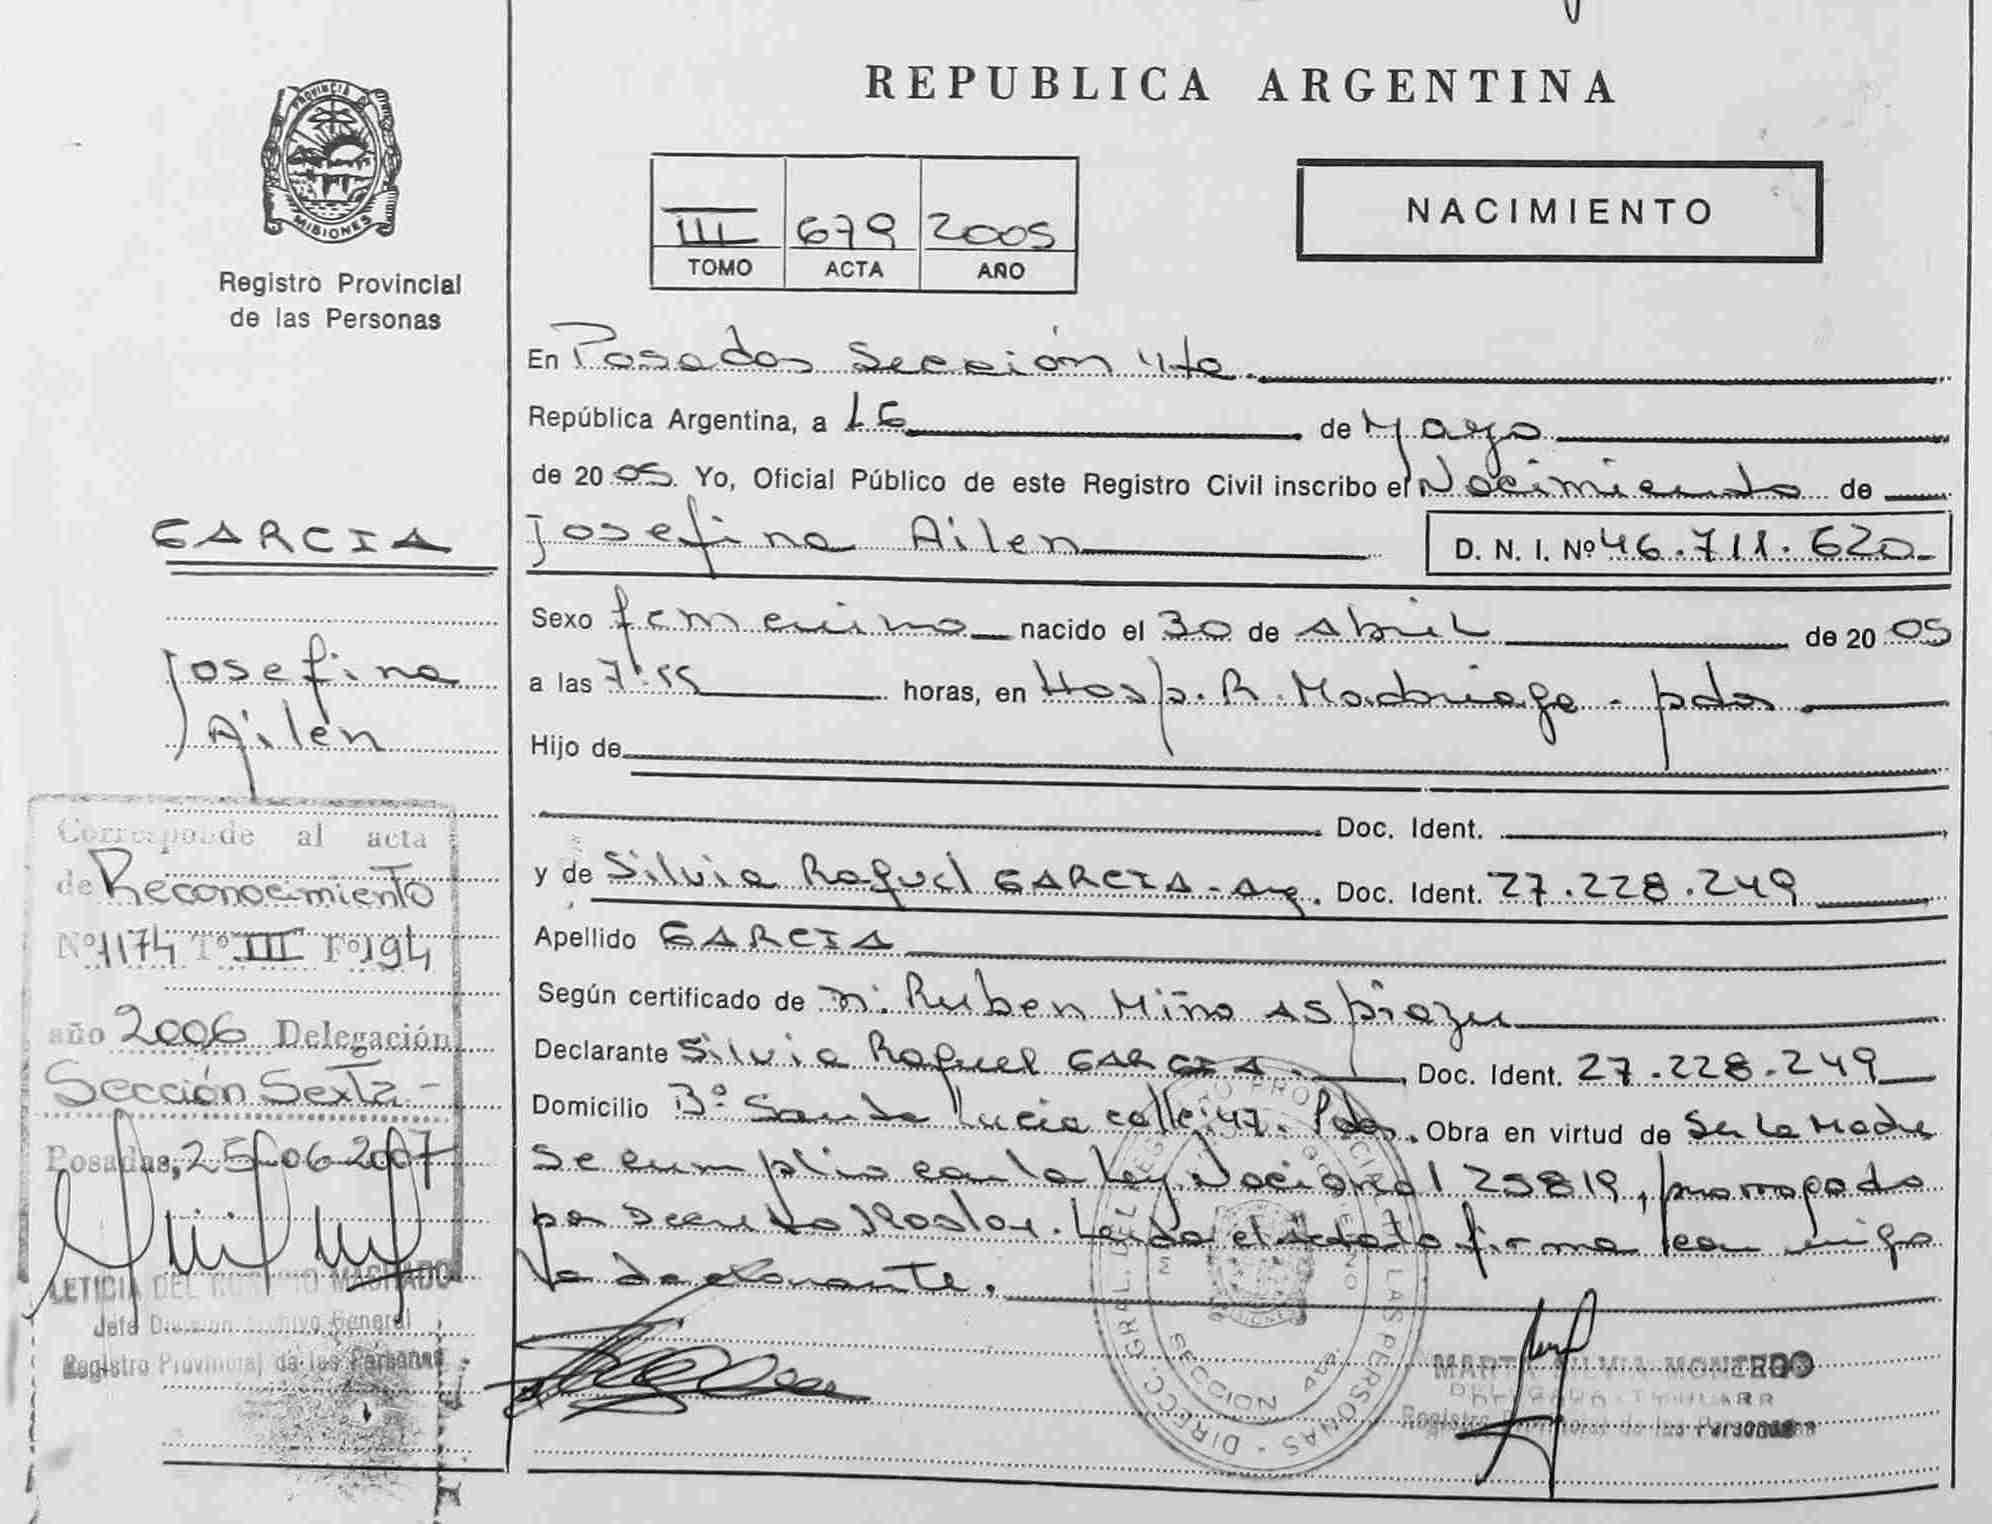 REPUBLICA ARGENTINA
PROVINCIA DE
MISIONES
Registro Provincial
de las Personas
III 679 2005
TOMO ACTA AÑO
NACIMIENTO
En Posadas Sección 4ta.
República Argentina, a 16 de Mayo
de 2005. Yo, Oficial Público de este Registro Civil inscribo el Nacimiento de
GARCIA
Josefina Ailen
Josefina Ailen D. N. I. Nº 46.711.620
Sexo femenino nacido el 30 de Abril de 2005
a las 7:55 horas, en Hosp. R. Madariaga - pdas.
Hijo de
Doc. Ident.
y de Silvia Raquel GARCIA - Arg. Doc. Ident. 27.228.249
Apellido GARCIA
Según certificado de Ruben Miño Aspiazu
Declarante Silvia Raquel GARCIA. Doc. Ident. 27.228.249
Domicilio Bº Santa Lucia calle: 47. Pdas. Obra en virtud de Ser La Madre
Se cumplio con la Ley Nacional 25819, prorrogado
por Decreto. Leida el Acta la firma con migo
la declarante.
Corresponde al acta
de Reconocimiento
Nº 1174 Tº III Fº 194
año 2006 Delegación
Sección Sexta-
Posadas, 25-06-2007
LETICIA DEL ROSARIO MACHADO
Jefe División Archivo General
Registro Provincial de las Personas
DIRECC. GRAL. DEL REGISTRO PROVINCIAL DE LAS PERSONAS
SECCION 4ta.
MARTA SILVIA MONTERO
DELEGADA TITULAR
Registro Provincial de las Personas